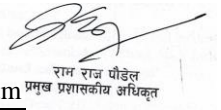 राम राज पौडेल
m प्रमुख प्रशासकीय अधिकृत